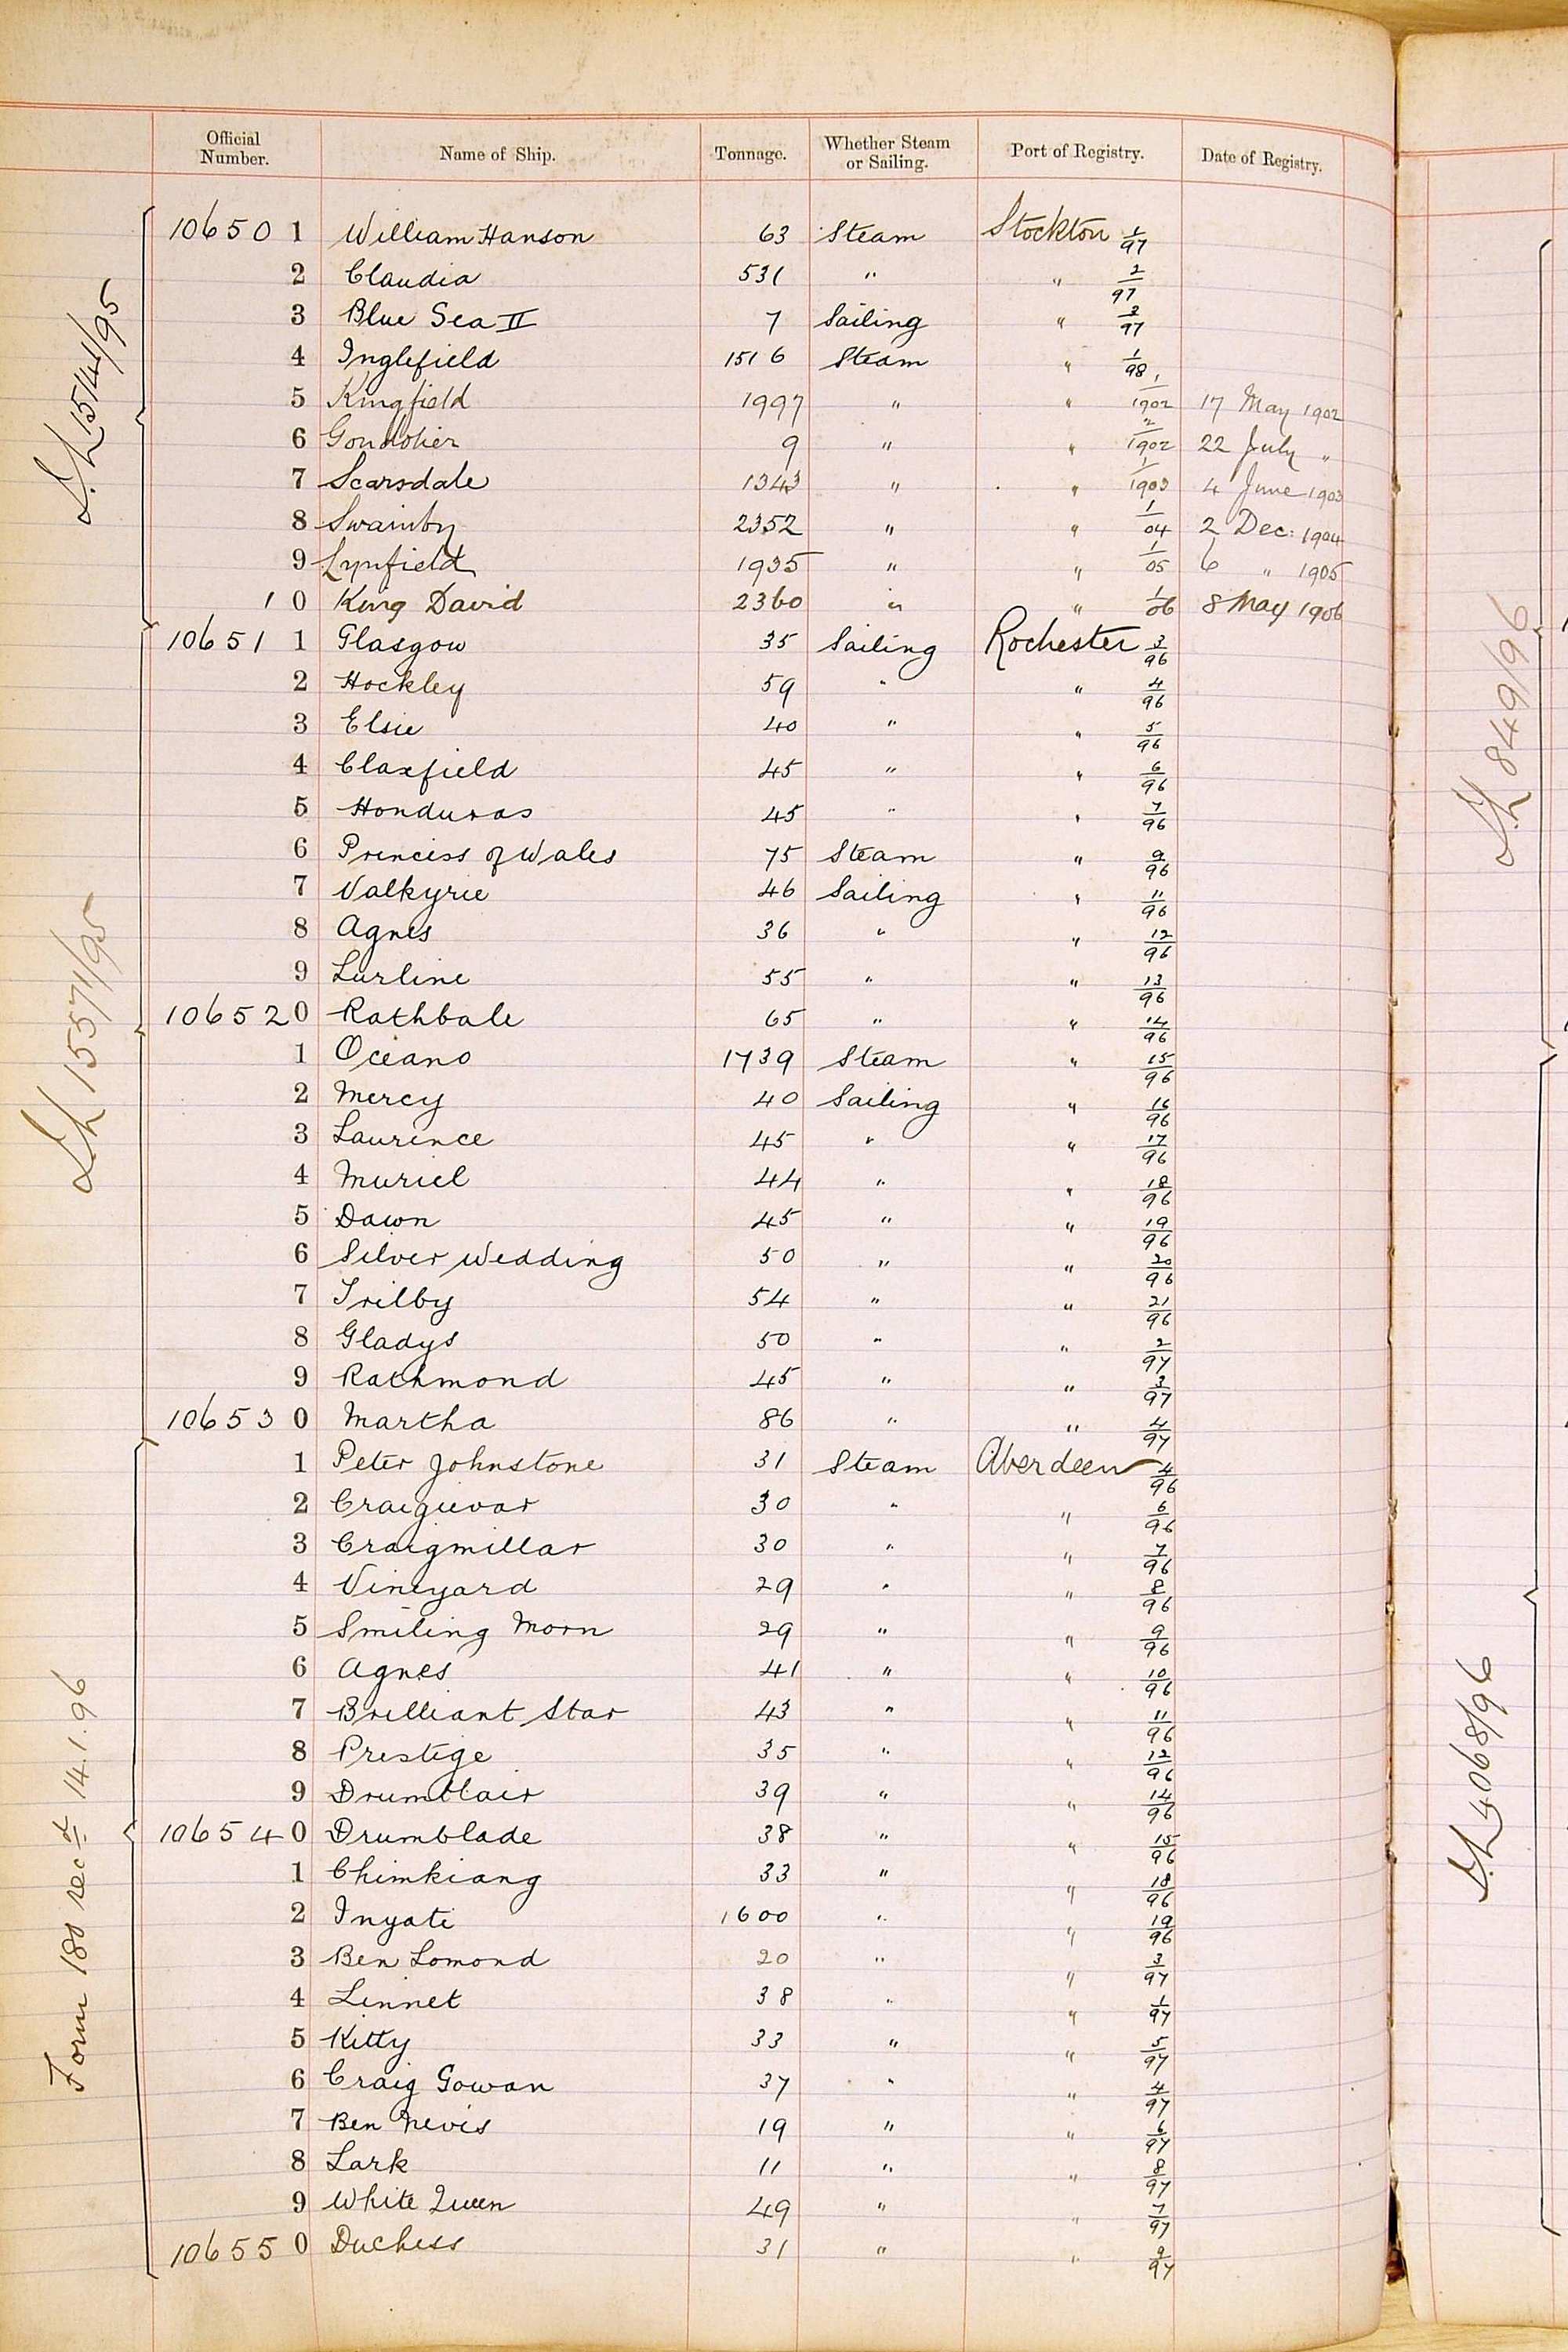 Official Number. Name of Ship. Tonnage. Whether Steam or Sailing. Port of Registry. Date of Registry.
10650 1 William Hanson 63 Steam Stockton 1/97
2 Claudia 531 " " 2/97
3 Blue Sea II 7 Sailing " 3/97
4 Inglefield 1516 Steam " 1/98
5 Kingfield 1997 " " 1/1902 17 May 1902
6 Gondolier 9 " " 2/1902 22 July "
7 Scarsdale 1343 " " 1/1903 4 June 1903
8 Swainby 2352 " " 1/04 2 Dec: 1904
9 Lynfield 1935 " " 1/05 6 " 1905
1 0 King David 2360 " " 1/06 8 May 1906
10651 1 Glasgow 35 Sailing Rochester 3/96
2 Hockley 59 " " 4/96
3 Elsie 40 " " 5/96
4 Claxfield 45 " " 6/96
5 Honduras 45 " " 7/96
6 Princess of Wales 75 Steam " 9/96
7 Valkyrie 46 Sailing " 11/96
8 Agnes 36 " " 12/96
9 Lurline 55 " " 13/96
10652 0 Rathbale 65 " " 14/96
1 Oceano 1739 Steam " 15/96
2 Mercy 40 Sailing " 16/96
3 Laurence 45 " " 17/96
4 Muriel 44 " " 18/96
5 Dawn 45 " " 19/96
6 Silver Wedding 50 " " 20/96
7 Trilby 54 " " 21/96
8 Gladys 50 " " 2/97
9 Rathmond 45 " " 3/97
10653 0 Martha 86 " " 4/97
1 Peter Johnstone 31 Steam Aberdeen 4/96
2 Craigievar 30 " " 6/96
3 Craigmillar 30 " " 7/96
4 Vineyard 29 " " 8/96
5 Smiling Morn 29 " " 9/96
6 Agnes 41 " " 10/96
7 Brilliant Star 43 " " 11/96
8 Prestige 35 " " 12/96
9 Drumblair 39 " " 14/96
10654 0 Drumblade 38 " " 15/96
1 Chimkiang 33 " " 18/96
2 Inyati 1600 " " 19/96
3 Ben Lomond 20 " " 3/97
4 Linnet 38 " " 1/97
5 Kitty 33 " " 5/97
6 Craig Gowan 37 " " 4/97
7 Ben Nevis 19 " " 6/97
8 Lark 11 " " 8/97
9 White Queen 49 " " 7/97
10655 0 Duchess 31 " " 9/97
15144/95
15571/95
Form 180 recd 14.1.96
849/96
4068/96